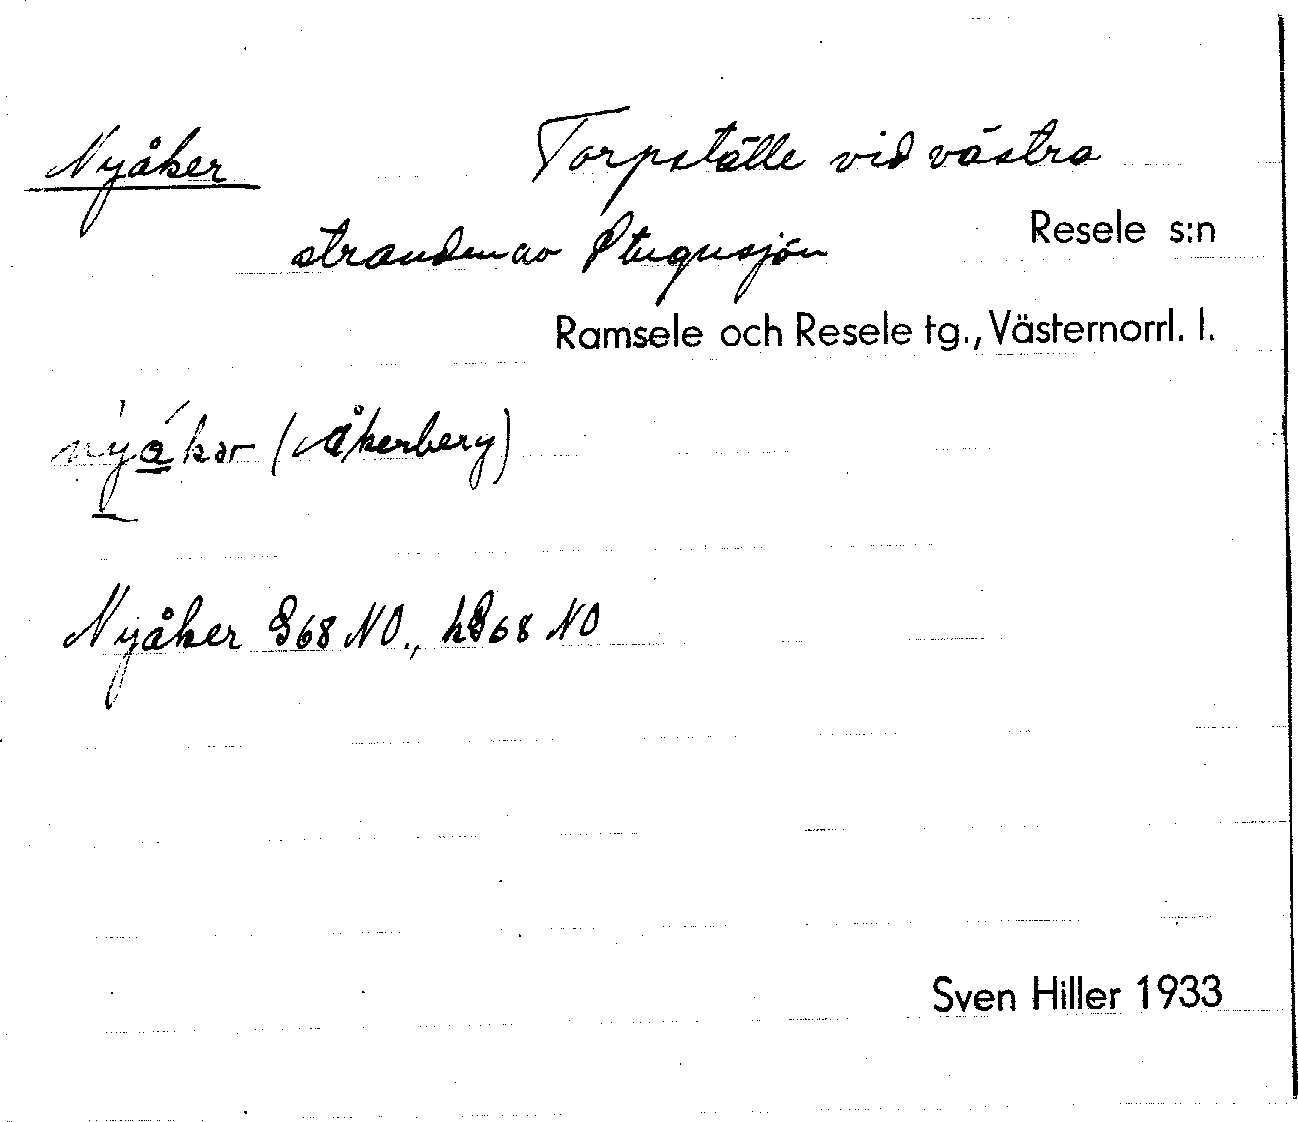 Nyåker Torpställe vid västra
stranden av Stugusjön Resele s:n
Ramsele och Resele tg., Västernorrl. l.
nyákər (Åkerberg)
Nyåker G68 NO., hG68 NO
Sven Hiller 1933